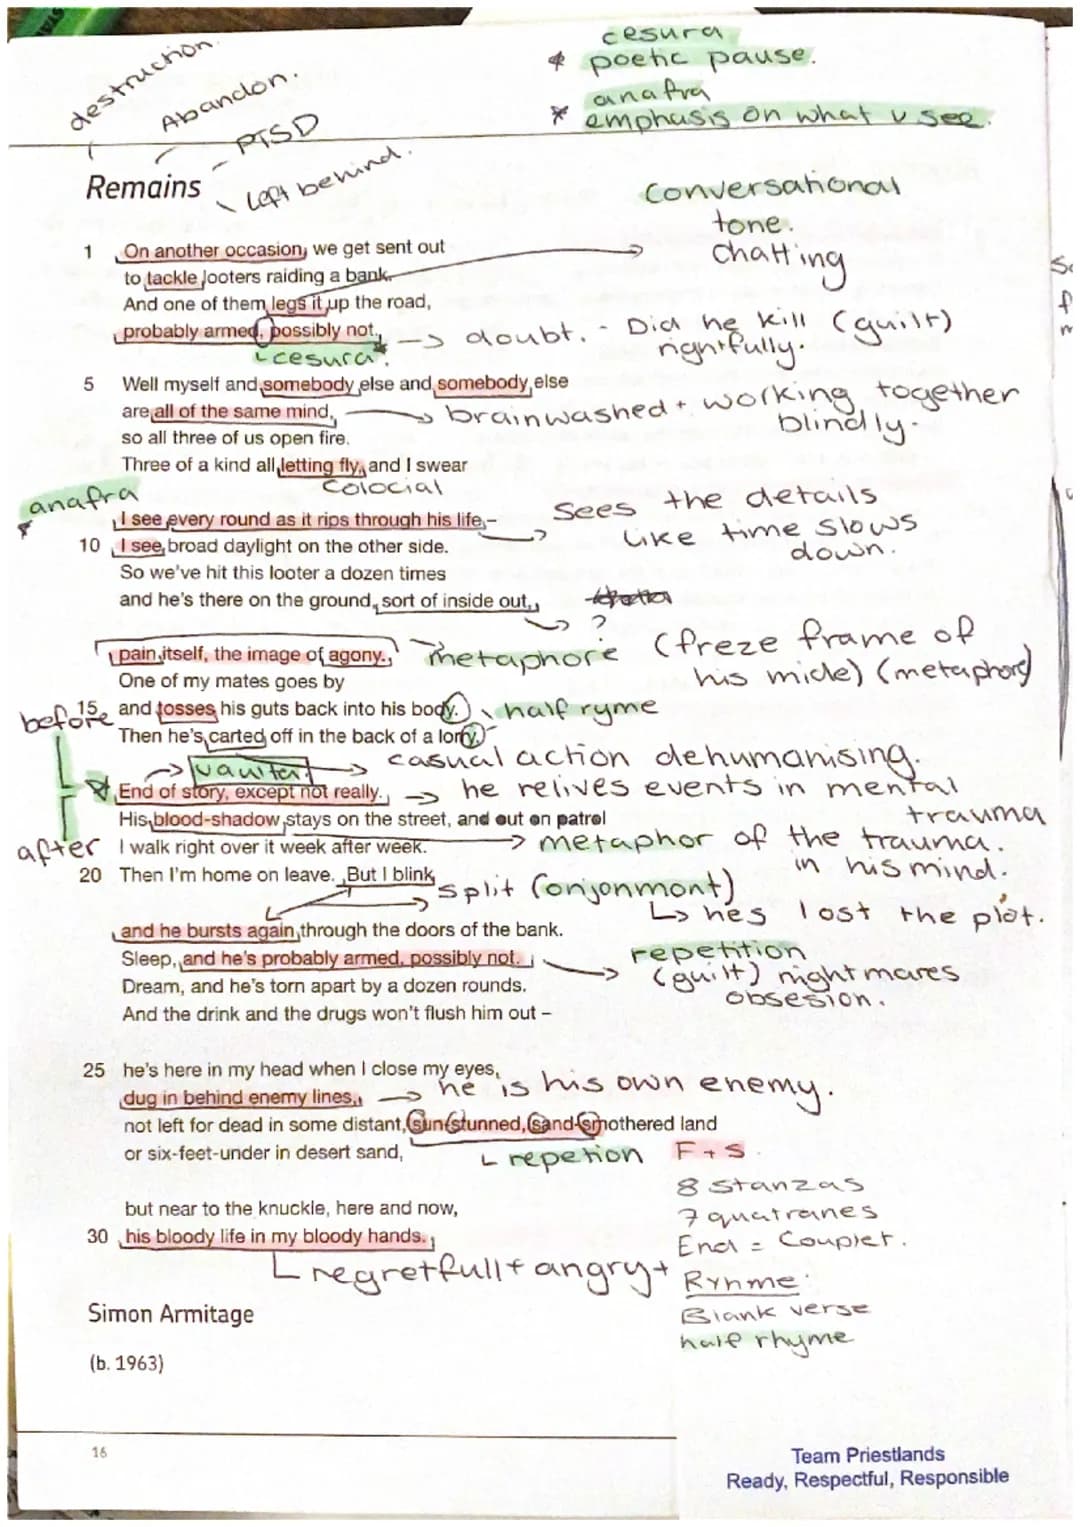 destruction.
Abandon.
PTSD
Left behind.
cesura
* poetic pause.
anafra
* emphasis on what u see.
Remains
Conversational
tone.
Chatting
1 On another occasion, we get sent out
to tackle looters raiding a bank.
And one of them legs it up the road,
probably armed, possibly not.
cesura*
doubt. - Did he kill (guilt)
rightfully.
5 Well myself and somebody else and somebody else
are all of the same mind,
brainwashed + working together
blindly.
so all three of us open fire.
Three of a kind all letting fly, and I swear
Colocial
anafra
*
I see every round as it rips through his life –
Sees the details
like time slows
down.
10 I see broad daylight on the other side.
So we've hit this looter a dozen times
and he's there on the ground, sort of inside out,
?
pain itself, the image of agony.
metaphore (freze frame of
his micle) (metaphore)
One of my mates goes by
15 and tosses his guts back into his body.
half ryme
Then he's carted off in the back of a lorry.
before
casual action dehumanising.
End of story, except not really.
he relives events in mental
trauma
His blood-shadow stays on the street, and out on patrol
after
I walk right over it week after week.
metaphor of the trauma.
in his mind.
20 Then I'm home on leave. But I blink
split (onjonmont)
hes lost the plot.
and he bursts again through the doors of the bank.
Sleep, and he's probably armed, possibly not.
repetition
(guilt) nightmares
obsesion.
Dream, and he's torn apart by a dozen rounds.
And the drink and the drugs won't flush him out –
25 he's here in my head when I close my eyes,
dug in behind enemy lines,
he is his own enemy.
not left for dead in some distant, sun-stunned, sand-smothered land
or six-feet-under in desert sand,
repetion
F + S
8 stanzas
7 quatranes
End = Couplet.
but near to the knuckle, here and now,
30 his bloody life in my bloody hands.
regretfull + angry +
Rynme:
Blank verse
half rhyme
Simon Armitage
(b. 1963)
16
Team Priestlands
Ready, Respectful, Responsible